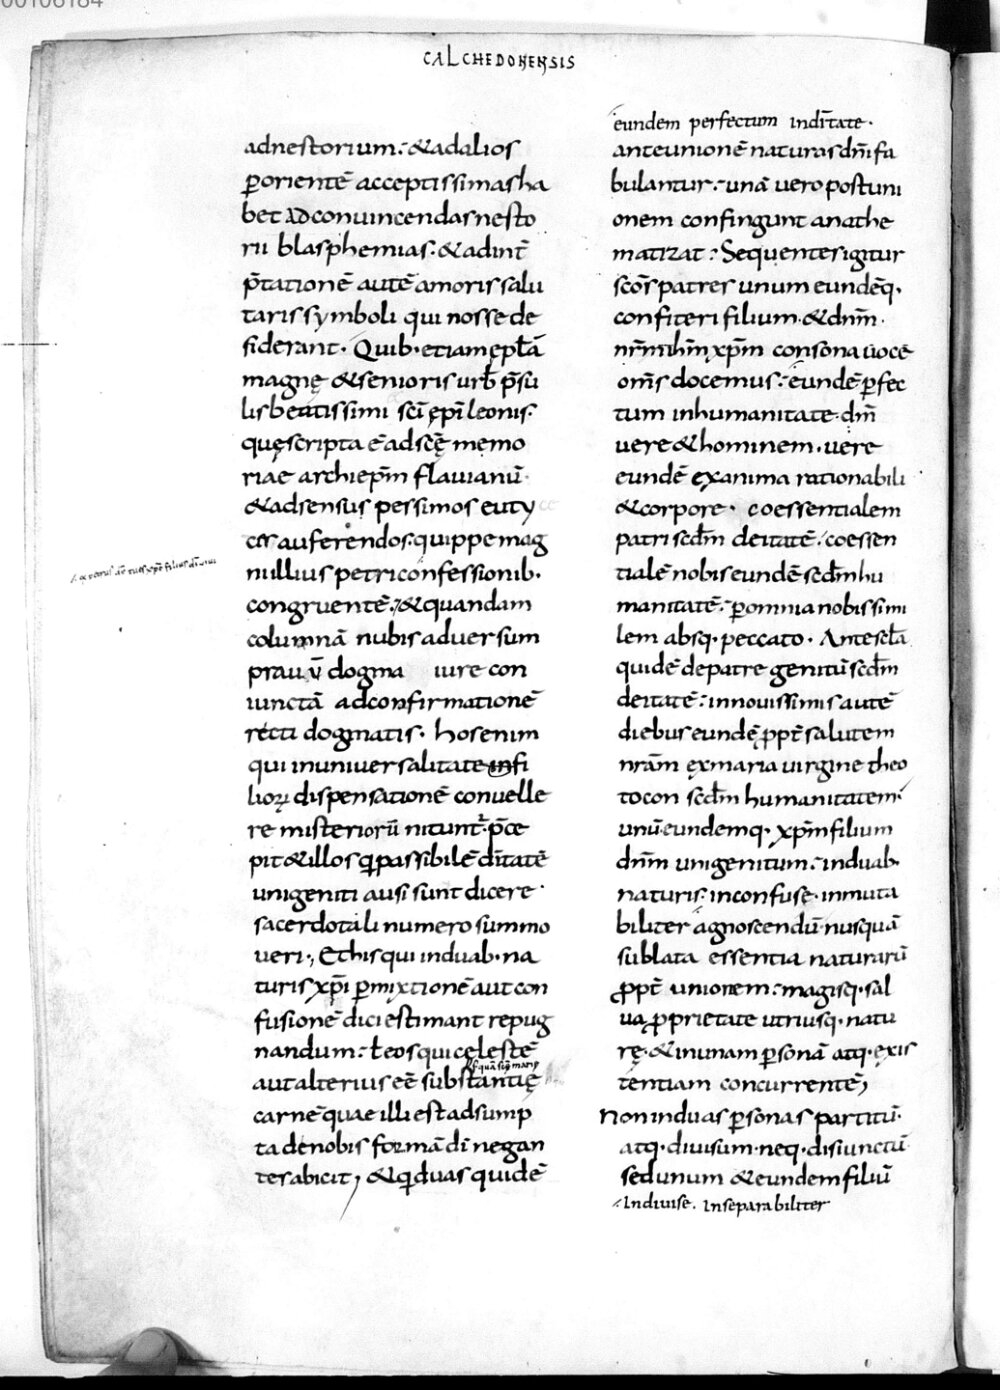 00106184
CALCHEDONENSIS
adnestorium:&adalios
p̄orientē acceptissimasha
bet adconvincendasnesto
rii blasphemias·&adint̄
p̄tationē autē amorissalu
tarissymboli qui nosse de
siderant· Quib·etiamępt̄ā
magnę &senioris urb̄ p̄su
lisbeatissimi sc̄i ępi leonis·
quęscripta ē adscē memo
riae archiepm̄ flavianū·
&adsensus pessimos euty
ces auferendos·quippe mag
ni illius petri confessionib·
congruentē·,&quandam
columnā nubis adversum
prauū dogma iure con
iunctā adconfirmationē
recti dogmatis· hosenim
qui inuniversalitate infi
liorꝝ dispensationē convelle
re misteriorū nitunt·p̄ce
pit&illos q passibilē dītatē
unigeniti ausi sunt dicere·
sacerdotali numero summo
veri·, Ethisqui induab·na
turis xp̄i p̄mixtionē aut con
fusionē dici estimant repug
nandum: teos qui cęlestē
ł quā scīmaris
aut alterius eē substantię
carnē quae illi est adsump
ta denobis formā dī negan
tes abicit, &q duas quidē
eundem perfectum indītate·
anteunionē naturas dn̄i fa
bulantur:·unā vero postuni
onem confingunt anathe
matizat: Sequentes igitur
sc̄os patres unum eundēq·
confiteri filium·&dnm̄·
nr̄m ihm̄ xp̄m consona voce
om̄s docemus: eundē p̄fec
tum inhumanitate·dm̄
vere &hominem·vere
eundē exanima rationabili
&corpore· coessentialem
patri scdm̄ deitatē: coessen
tialē nobis eundē scdm̄ hu
manitatē: p̄omnia nobis simi
lem absq·peccato· Ante sc̄lā
quidē depatre genitū scdm̄
deitatē: innovissimis autē
diebus eundē ꝓpt̄ salutem
nr̄am exmaria virgine theo
tocon scdm̄ humanitatem·
unū·eundemq· xp̄m filium
dnm̄ unigenitum: induab·
naturis·inconfuse·inmuta
biliter agnoscendū·nusquā
sublata essentia naturarū
ꝓpt̄ unionem: magisq·sal
va ꝓprietate utriusq·natu
rę·&inunam p̄sonā atq·exis
tentiam concurrentē,
Non induas p̄sonas partitū·
atq·divisum·neq·disiunctū
sed unum &eundem filiū
·Indivise· Inseparabiliter